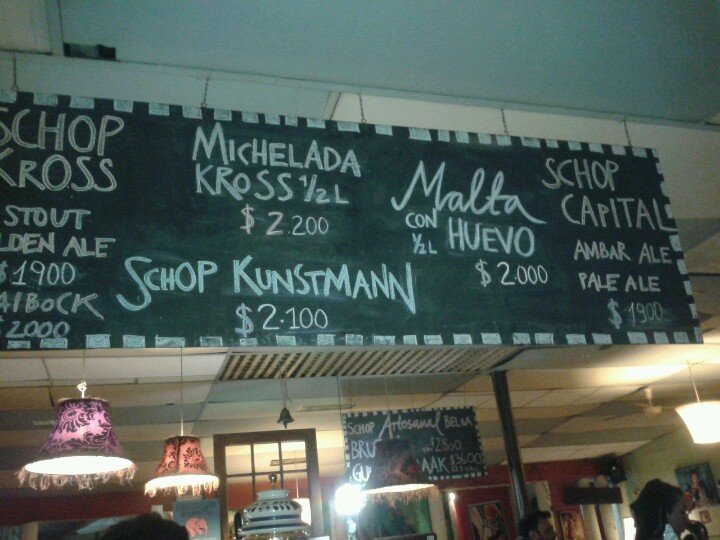 SCHOP
KROSS
STOUT
LDEN ALE
$1900
AIBOCK
$2000
MICHELADA
KROSS ½ L
$2.200
SCHOP KUNSTMANN
$2.100
Malta
CON
½L HUEVO
$2.000
SCHOP
CAPITAL
AMBAR ALE
PALE ALE
$1900
SCHOP Artesanal BELGA